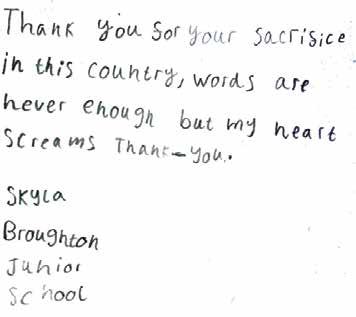 Thank you for your sacrifice
in this country, words are
never enough but my heart
screams Thank-you.
Skyla
Broughton
Junior
School